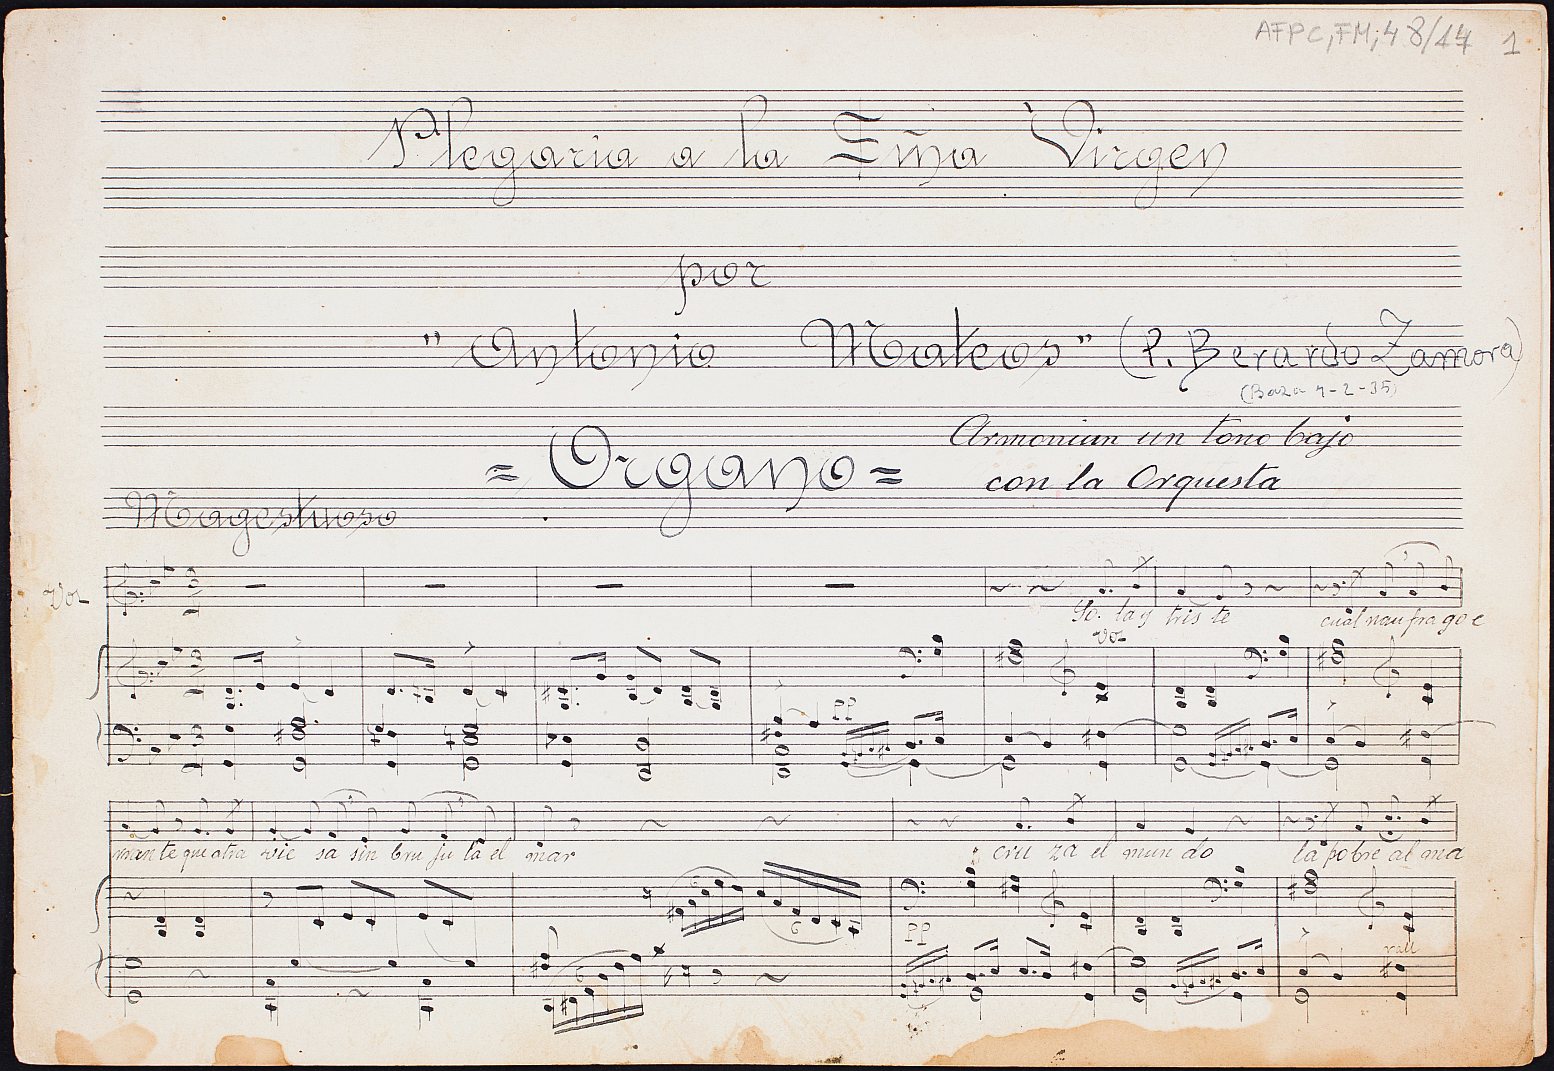 AFPC, FM, 48/14 1
Plegaria a la Sma Virgen
por
"Antonio Mateos" (P. Berardo Zamora)
(Baza 7-2-35)
Armonium un tono bajo
= Organo =
con la Orquesta
Magestuoso
Voz
So. la y tris te cual nau fra go e
voz
PP
rran te que atra vie sa sin bru ju la el mar cru za el mun do la pobre al ma
6
PP
6
rall
6